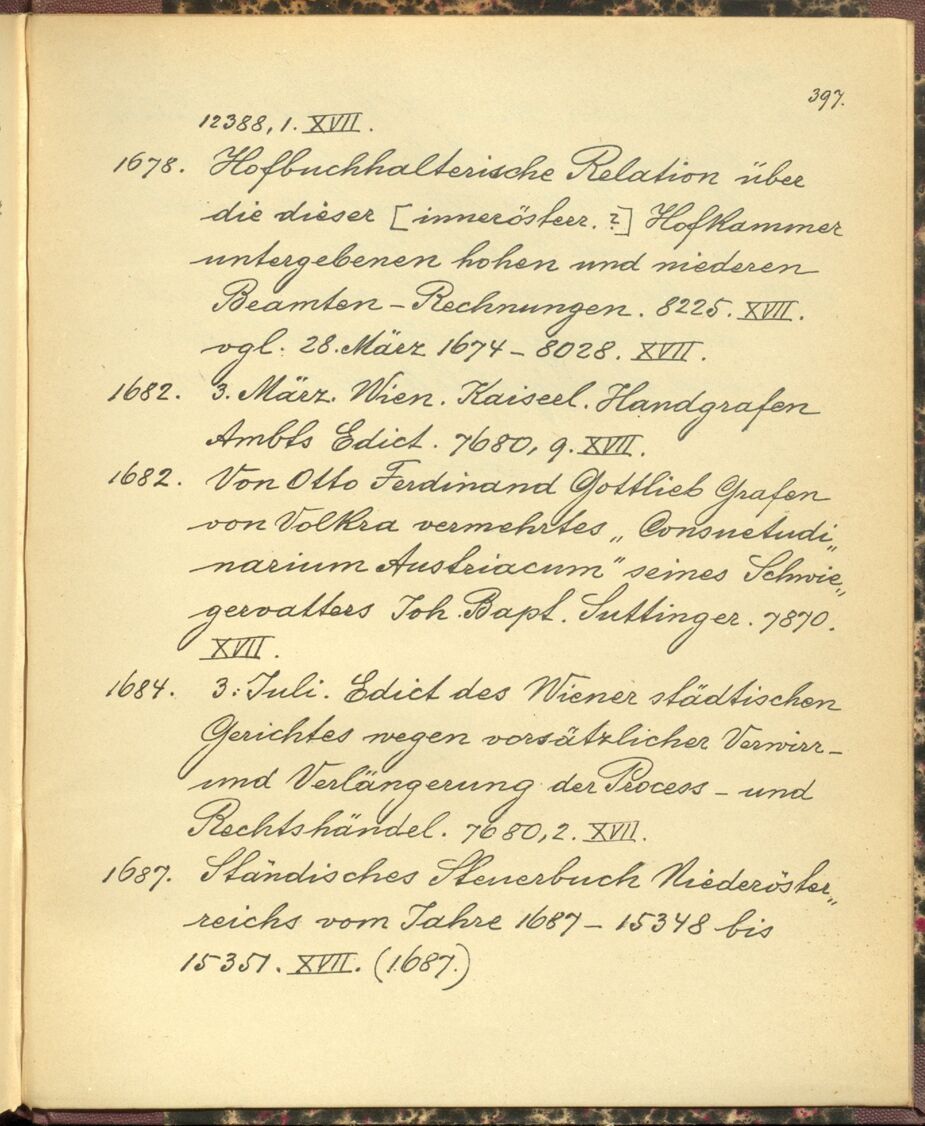 397.
12388, 1. XVII.
1678. Hofbuchhalterische Relation über
die dieser [innerösterr. ?] Hofkammer
untergebenen hohen und niederen
Beamten - Rechnungen. 8225. XVII.
vgl. 28. März 1674 - 8028. XVII.
1682. 3. März. Wien. Kaiserl. Handgrafen
Ambts Edict. 7680, 9. XVII.
1682. Von Otto Ferdinand Gottlieb Grafen
von Volkra vermehrtes „Consuetudi„
narium Austriacum" seines Schwie„
gervatters Joh. Bapt. Suttinger. 7870.
XVII.
1684. 3. Juli. Edict des Wiener städtischen
Gerichtes wegen vorsätzlicher Verwirr-
und Verlängerung der Process - und
Rechtshändel. 7680, 2. XVII.
1687. Ständisches Steuerbuch Niederöster„
reichs vom Jahre 1687 - 15348 bis
15351. XVII. (1687.)